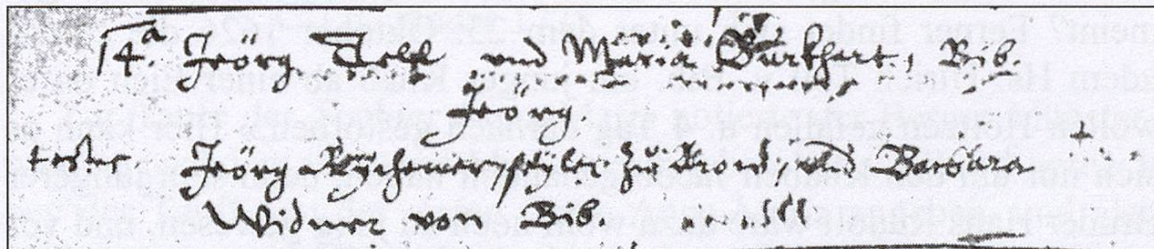 14.a Jeörg Dell und Maria Burkhart, Bib.
Jeörg.
testes. Jeörg Rychener, zu und Barbara
Widmer von Bib.